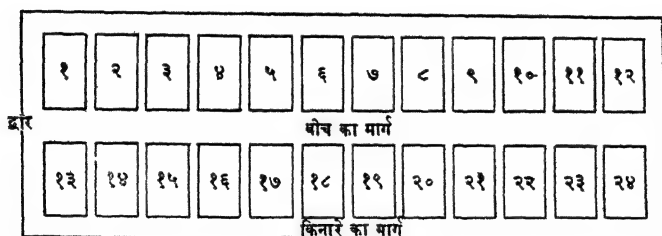 १ २ ३ ४ ५ ६ ७ ८ ९ १० ११ १२
द्वार
बीच का मार्ग
१३ १४ १५ १६ १७ १८ १९ २० २१ २२ २३ २४
किनारे का मार्ग